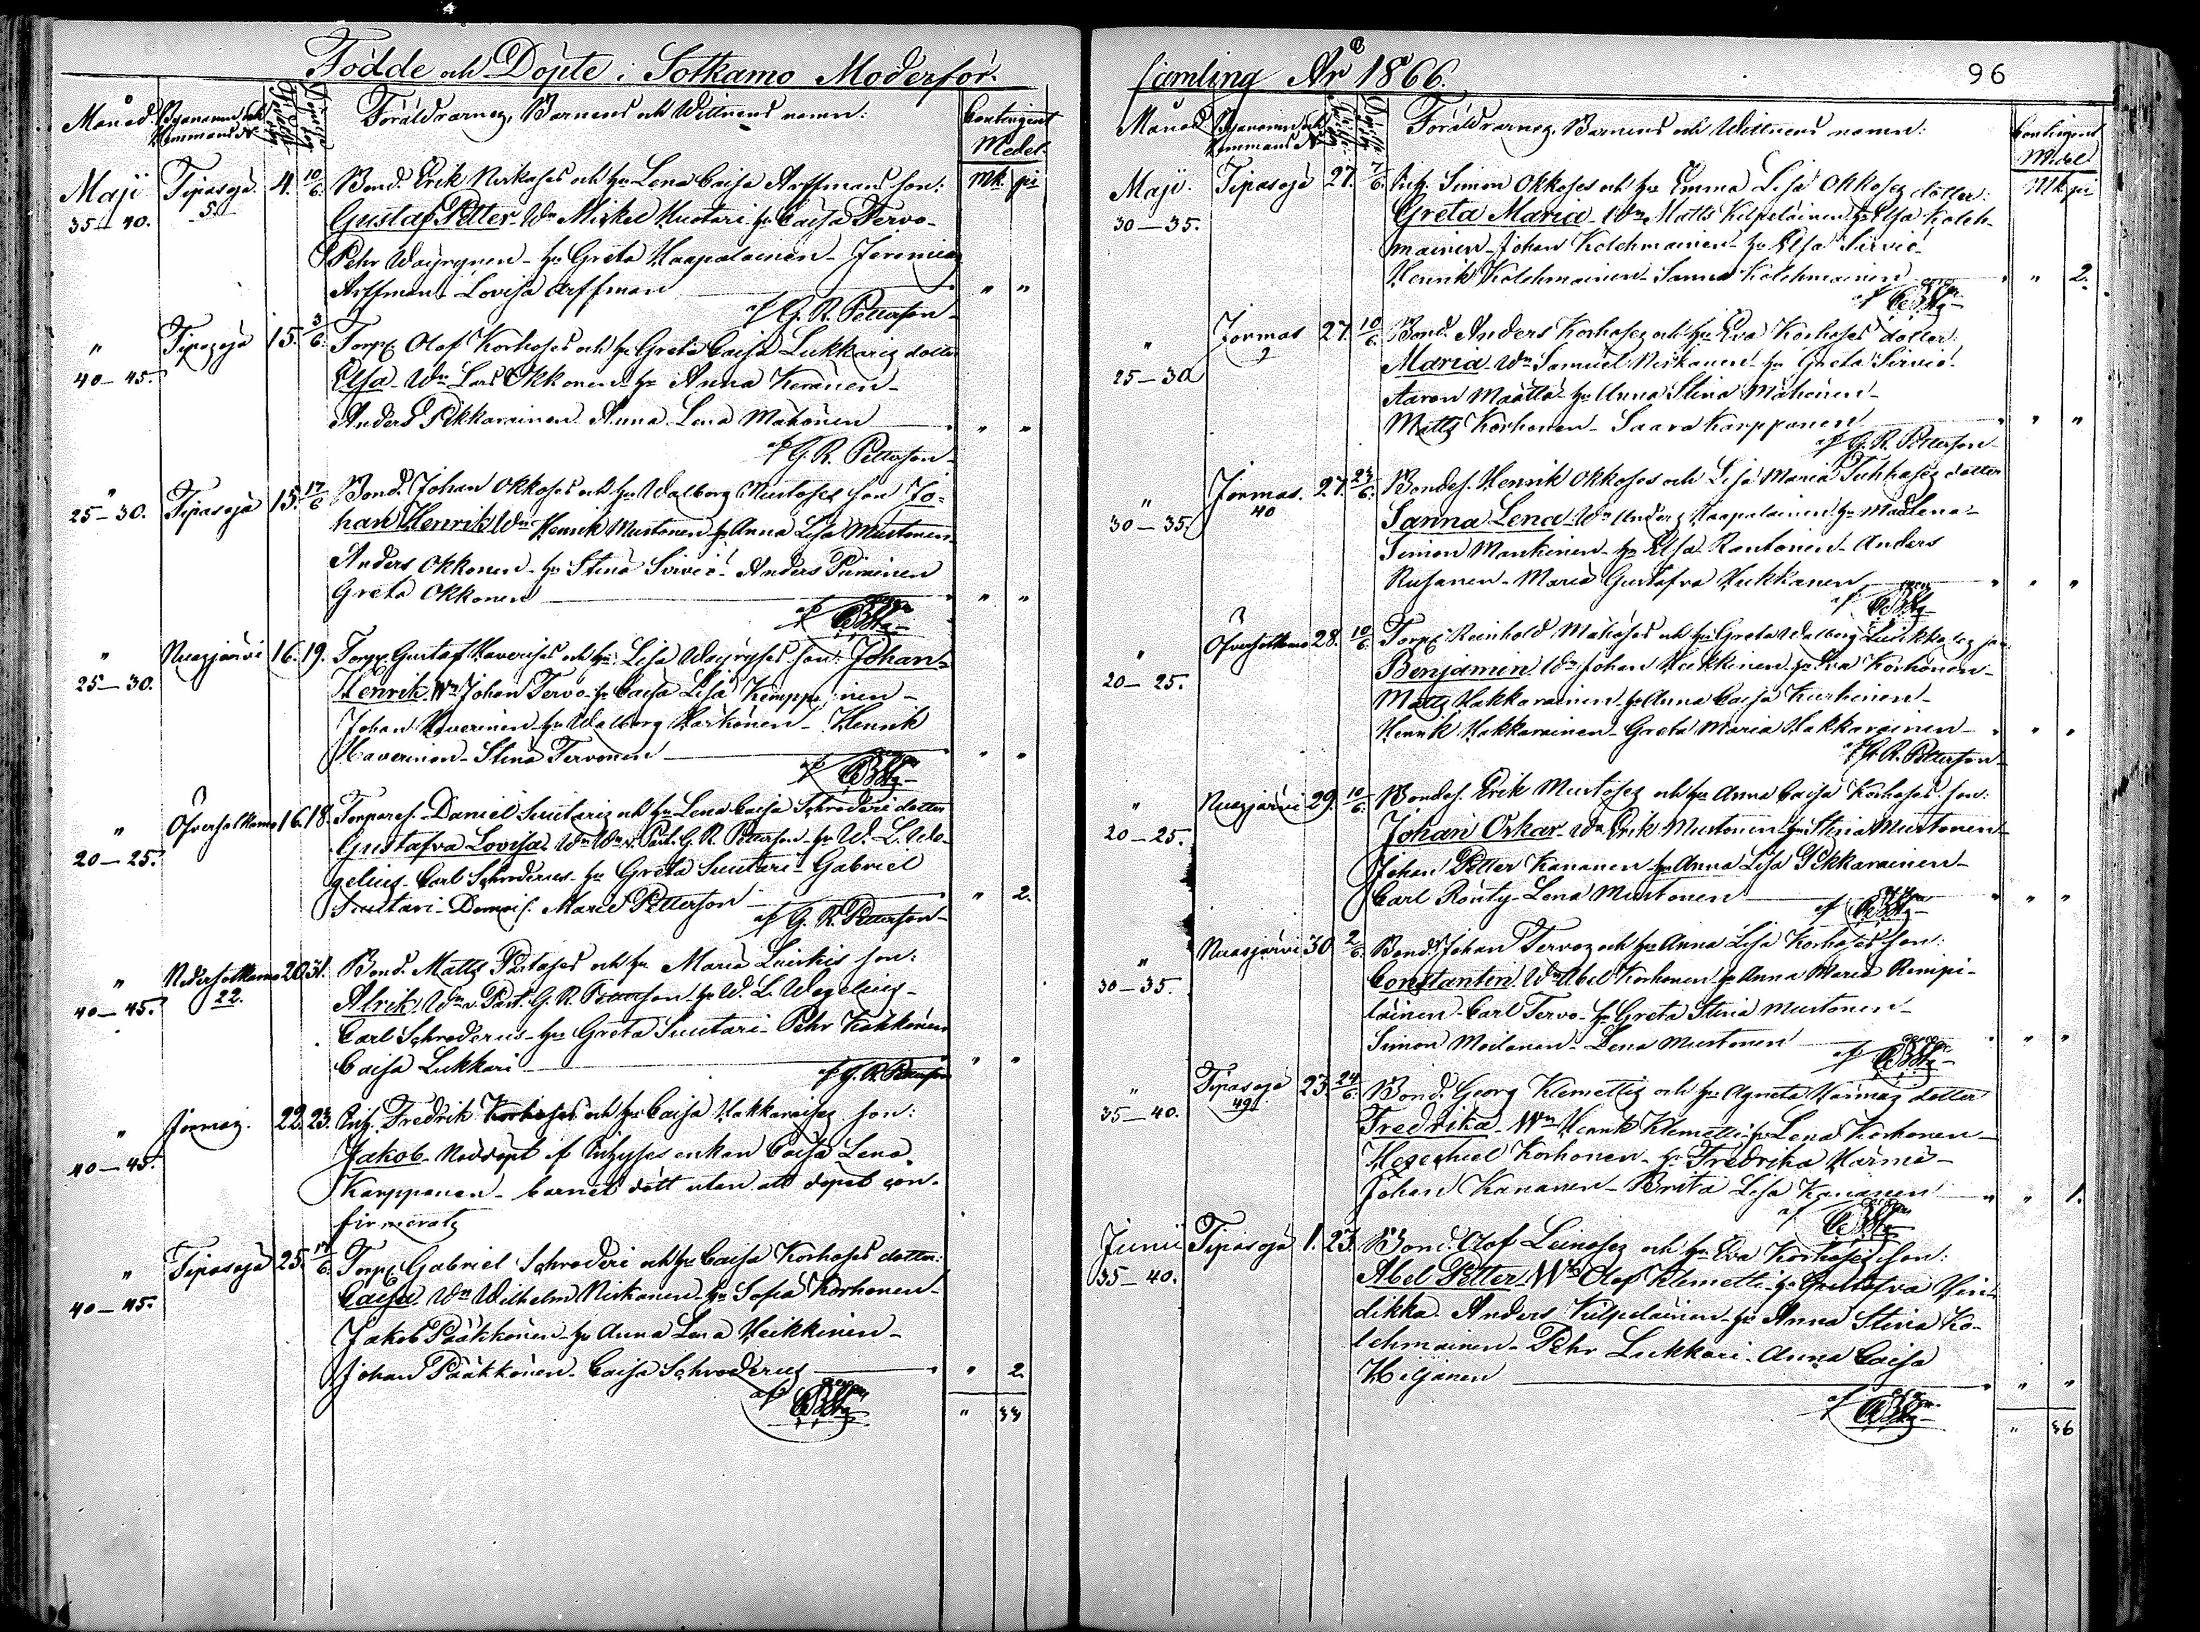 Födde och Döpte i Sotkamo Moderför-
Månad. Byanamn och Hemmans No
Föräldrarnes, Barnens och Wittnens namn:
Contingent
Medel.
Mk. pi
Maji Tipasoja 4. 10/6. Bond. Erik Niskases och hu Lena Caisa Arffmans son:
35–40. 51 Gustaf Petter. Wn Mickel Huotari hu Caisa Tervo-
Pehr Wäyrynen – hu Greta Haapalainen – Jeremias
Arffman – Lovisa Arffman " "
af G. R. Petterson
" Tipasoja 15. 3/6. Torp. Olof Korhoses och hu Greta Caisa Lukkaris dotter
40–45. Elsa. Wn Lars Okkonen – hu Anna Keränen –
Anders Pikkarainen. Anna Lena Mähönen " "
af G. R. Petterson
" Tipasoja 15. 17/6 Bond. Johan Okkoses och hu Walborg Mustoses son Jo-
25–30. han Henrik Wn Henrik Mustonen hu Anna Lisa Mustonen
Anders Okkonen – hu Stina Sirviö – Anders Piirainen
Greta Okkonen " "
af
" Nuasjärvi 16. 19. Torp. Gustaf Haverises och hu Lisa Wäyryses son: Johan
25–30. Henrik. Wn Johan Tervo – hu Caisa Lisa Kemppainen –
Johan Haverinen – hu Walborg Härkönen – Henrik
Haverinen – Stina Tervonen " "
af
" Öfversotkamo 16. 18. Torpares. Daniel Suutaris och hu Lena Caisa Schroderi dotter
20–25. Gustafva Lovisa. Wn v. Past. G. R. Petterson – hu W. L. We-
gelius – Carl Schroderus – hu Greta Suutari – Gabriel
Suutari – Demois. Maria Petterson " 2.
af G. R. Petterson
" Nedersotkamo 20. 31. Bond. Matts Partases och hu Maria son:
40–45. 22. Alrik. Wn v. Past. G. R. Petterson – hu W. L. Wegelius –
Carl Schroderus – hu Greta Suutari – Pehr Kokkonen
Caisa Lukkari " "
af G. R. Petterson
" Jormas. 22. 23. Inh. Fredrik Korhoses och hu Caisa Hakkaraises son:
40–45. Jakob. Nöddöpt af enkan Caisa Lena
Karppanen – barnet dött utan att dopet con-
firmerats
" Tipasoja 25. 17/6. Torp. Gabriel Schroderi och hu Caisa Korhoses dotter:
40–45. Caisa. Wn Wilhelm Niskanen – hu Sofia Korhonen –
Jakob Pääkkönen – hu Anna Lena Heikkinen –
Johan Pääkkönen – Caisa Schroderus " 2.
af
" 33
samling År 1866.
96
Månad Byanamn och Hemmans No
Föräldrarnes, Barnens och Wittnens namn:
Contingent
Medel
Mk pi
Maji. Tipasoja 27. 7/6. Inh. Simon Okkoses och hu Emma Lisa Okkoses dotter:
30–35. Greta Maria. Wn Matts Kilpeläinen hu Elsa Kolch-
mainen – Johan Kolchmainen – hu Elsa Sirviö –
Henrik Kolchmainen – Sanna Kolchmainen " 2.
af
" Jormas 27. 10/6. Bond. Anders Korhoses och hu Eva Korhoses dotter:
25–30 2 Maria. Wn Samuel Niskanen – hu Greta Sirviö –
Aaron Määttä – hu Anna Stina Mähönen –
Matts Korhonen – Saara Karppanen " "
af G. R. Petterson
" Jormas. 27. 24/6. Bondes. Henrik Okkoses och Lisa Maria Tuhkases dotter
30–35. 40 Sanna Lena. Wn Anders Haapalainen hu Madlena –
Simon Mankinen – hu Elsa Rantonen – Anders
Rusanen – Maria Gustafva Hukkanen " "
af
" Öfversotkamo 28. 10/6. Torp. Reinhold Mähöses och hu Greta Walborg son
20–25. Benjamin. Wn Johan Heikkinen. hu Eva Korhonen –
Matts Hakkarainen – hu Anna Caisa Karhinen –
Henrik Hakkarainen – Greta Maria Hakkarainen – " "
af G. R. Petterson
" Nuasjärvi 29. 10/6. Bondes. Erik Mustoses och hu Anna Caisa Korhoses son:
20–25. Johan Oskar. Wn Erik Mustonen – hu Stina Mustonen
Johan Petter Kananen – hu Anna Lisa Pikkarainen –
Carl Rönty – Lena Mustonen " "
af
" Nuasjärvi 30 2/6. Bond. Johan Tervos och hu Anna Lisa Korhoses son:
30–35. Constantin. Wn Abel Korhonen hu Anna Maria Rimpi-
läinen – Carl Tervo – hu Greta Stina Mustonen –
Simon Moilanen – Lena Mustonen " "
af
" Tipasoja 23. 24/6. Bond. Georg Klemettis och hu Agneta Härmäs dotter
35–40. 49 Fredrika. Wn Henrik Klemetti – hu Lena Korhonen –
Heseckiel Korhonen – hu Fredrika Härmä –
Johan Kananen – Brita Lisa Kananen " 1.
af
Junii Tipasoja 1. 23. Bond. Olof Leinoses och hu Eva Korhoses son:
35–40. Abel Petter. Wn Olof Klemetti – hu Gustafva Hin-
dikka. Anders Kilpeläinen – hu Anna Stina Ko-
lchmainen – Pehr Lukkari – Anna Caisa
Hiljanen " "
af
" 36